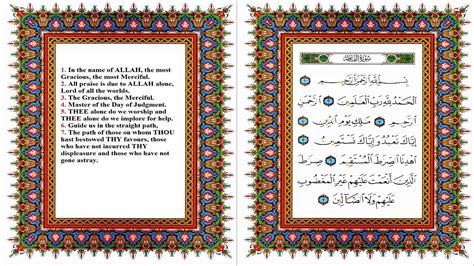 1. In the name of ALLAH, the most
Gracious, the most Merciful.
2. All praise is due to ALLAH alone,
Lord of all the worlds.
3. The Gracious, the Merciful.
4. Master of the Day of Judgment.
5. THEE alone do we worship and
THEE alone do we implore for help.
6. Guide us in the straight path,
7. The path of those on whom THOU
hast bestowed THY favours, those
who have not incurred THY
displeasure and those who have not
gone astray.
سُورَةُ الفَاتِحَة
بِسْمِ اللَّهِ الرَّحْمَٰنِ الرَّحِيمِ
الْحَمْدُ لِلَّهِ رَبِّ الْعَٰلَمِينَ الرَّحْمَٰنِ
الرَّحِيمِ مَٰلِكِ يَوْمِ الدِّينِ
إِيَّاكَ نَعْبُدُ وَإِيَّاكَ نَسْتَعِينُ
اهْدِنَا الصِّرَٰطَ الْمُسْتَقِيمَ صِرَٰطَ
الَّذِينَ أَنْعَمْتَ عَلَيْهِمْ غَيْرِ الْمَغْضُوبِ
عَلَيْهِمْ وَلَا الضَّآلِّينَ